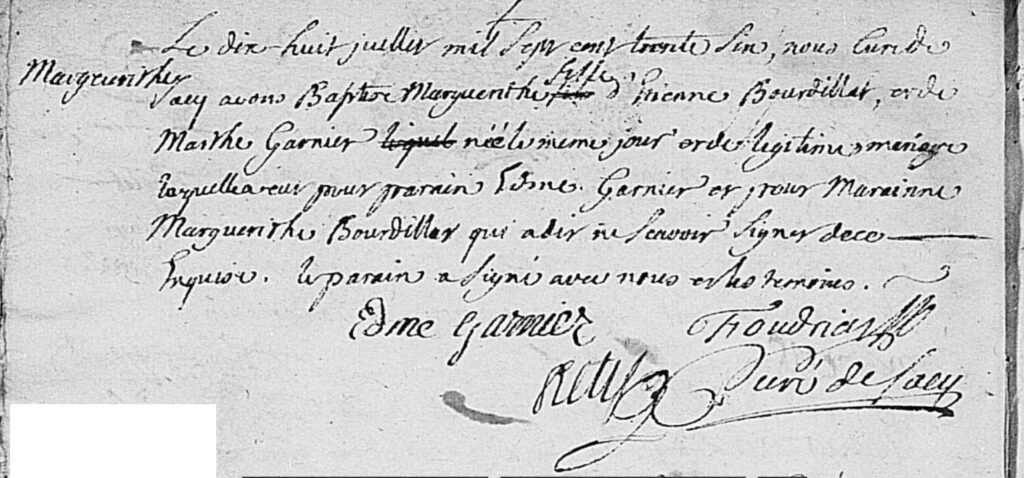 Marguerithe
Le dix-huit juillet mil sept cent trente six, nous Curé de
Sacy avons Baptisé Marguerithe fille d'Etienne Bourdillat, et de
Marthe Garnier lequel née le meme jour et de legitime mariage
laquelle a eut pour parain Edme Garnier et pour Marainne
Marguerithe Bourdillat qui a dit ne scavoir signer de ce
Enquise. le parain a signé avec nous et les temoins.
Edme Garnier Foudriat
Retif Curé de Sacy